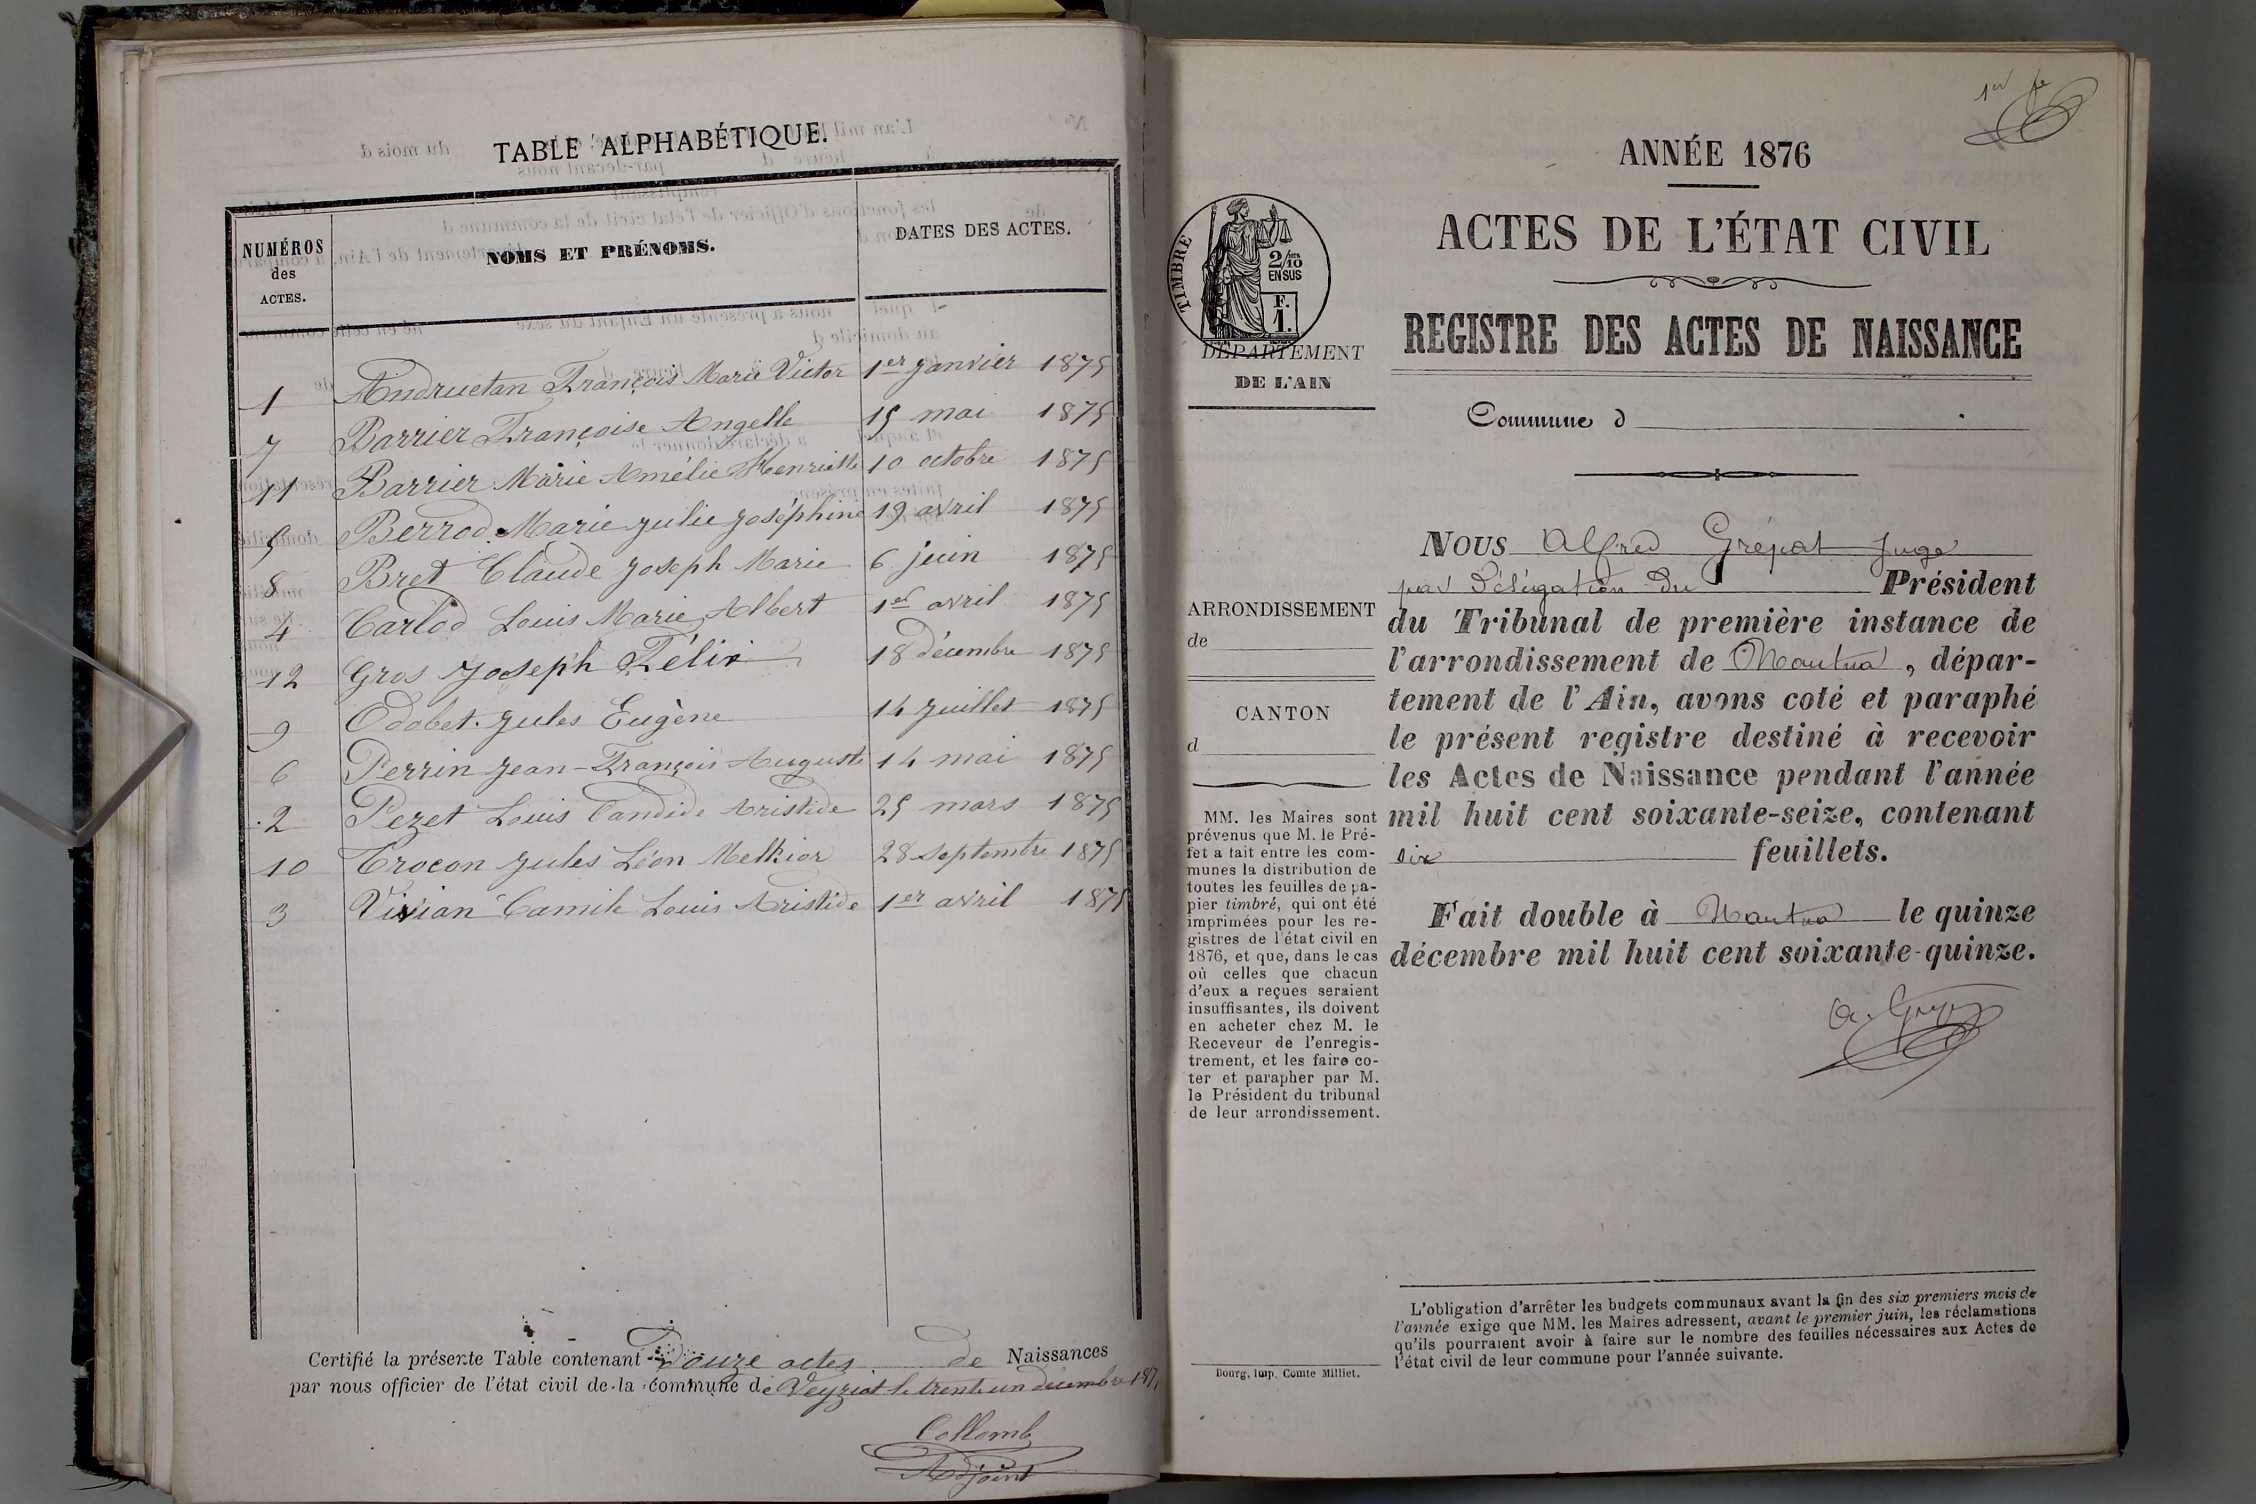 TABLE ALPHABÉTIQUE.
NUMÉROS
des
ACTES.
NOMS ET PRÉNOMS.
DATES DES ACTES.
1 Andruetan François Marie Victor 1er Janvier 1875
7 Barrier Françoise Angelle 15 mai 1875
11 Barrier Marie Amélie Henriette 10 octobre 1875
5 Berrod Marie Julie Joséphine 19 avril 1875
8 Bret Claude Joseph Marie 6 juin 1875
4 Carlod Louis Marie Albert 1er avril 1875
12 Gros Joseph Félix 18 décembre 1875
9 Odobet Jules Eugène 14 Juillet 1875
6 Perrin Jean-François Auguste 14 mai 1875
2 Pezet Louis Candide Aristide 25 mars 1875
10 Crocon Jules Léon Melkior 28 septembre 1875
3 Vivian Camile Louis Aristide 1er avril 1875
Certifié la présente Table contenant Douze actes de Naissances
par nous officier de l'état civil de la commune de Veyziat le trente un décembre 187
Collomb
Adjoint
1er
ANNÉE 1876
ACTES DE L'ÉTAT CIVIL
REGISTRE DES ACTES DE NAISSANCE
Commune d
TIMBRE
2/10
EN SUS
F.
1.
DÉPARTEMENT
DE L'AIN
ARRONDISSEMENT
de
CANTON
d
MM. les Maires sont
prévenus que M. le Pré-
fet a fait entre les com-
munes la distribution de
toutes les feuilles de pa-
pier timbré, qui ont été
imprimées pour les re-
gistres de l'état civil en
1876, et que, dans le cas
où celles que chacun
d'eux a reçues seraient
insuffisantes, ils doivent
en acheter chez M. le
Receveur de l'enregis-
trement, et les faire co-
ter et parapher par M.
le Président du tribunal
de leur arrondissement.
Bourg, Imp. Comte Milliet.
Nous Alfred Grépat Juge
par Délégation du Président
du Tribunal de première instance de
l'arrondissement de Nantua, dépar-
tement de l'Ain, avons coté et paraphé
le présent registre destiné à recevoir
les Actes de Naissance pendant l'année
mil huit cent soixante-seize, contenant
feuillets.
Fait double à Nantua le quinze
décembre mil huit cent soixante-quinze.
L'obligation d'arrêter les budgets communaux avant la fin des six premiers mois de
l'année exige que MM. les Maires adressent, avant le premier juin, les réclamations
qu'ils pourraient avoir à faire sur le nombre des feuilles nécessaires aux Actes de
l'état civil de leur commune pour l'année suivante.